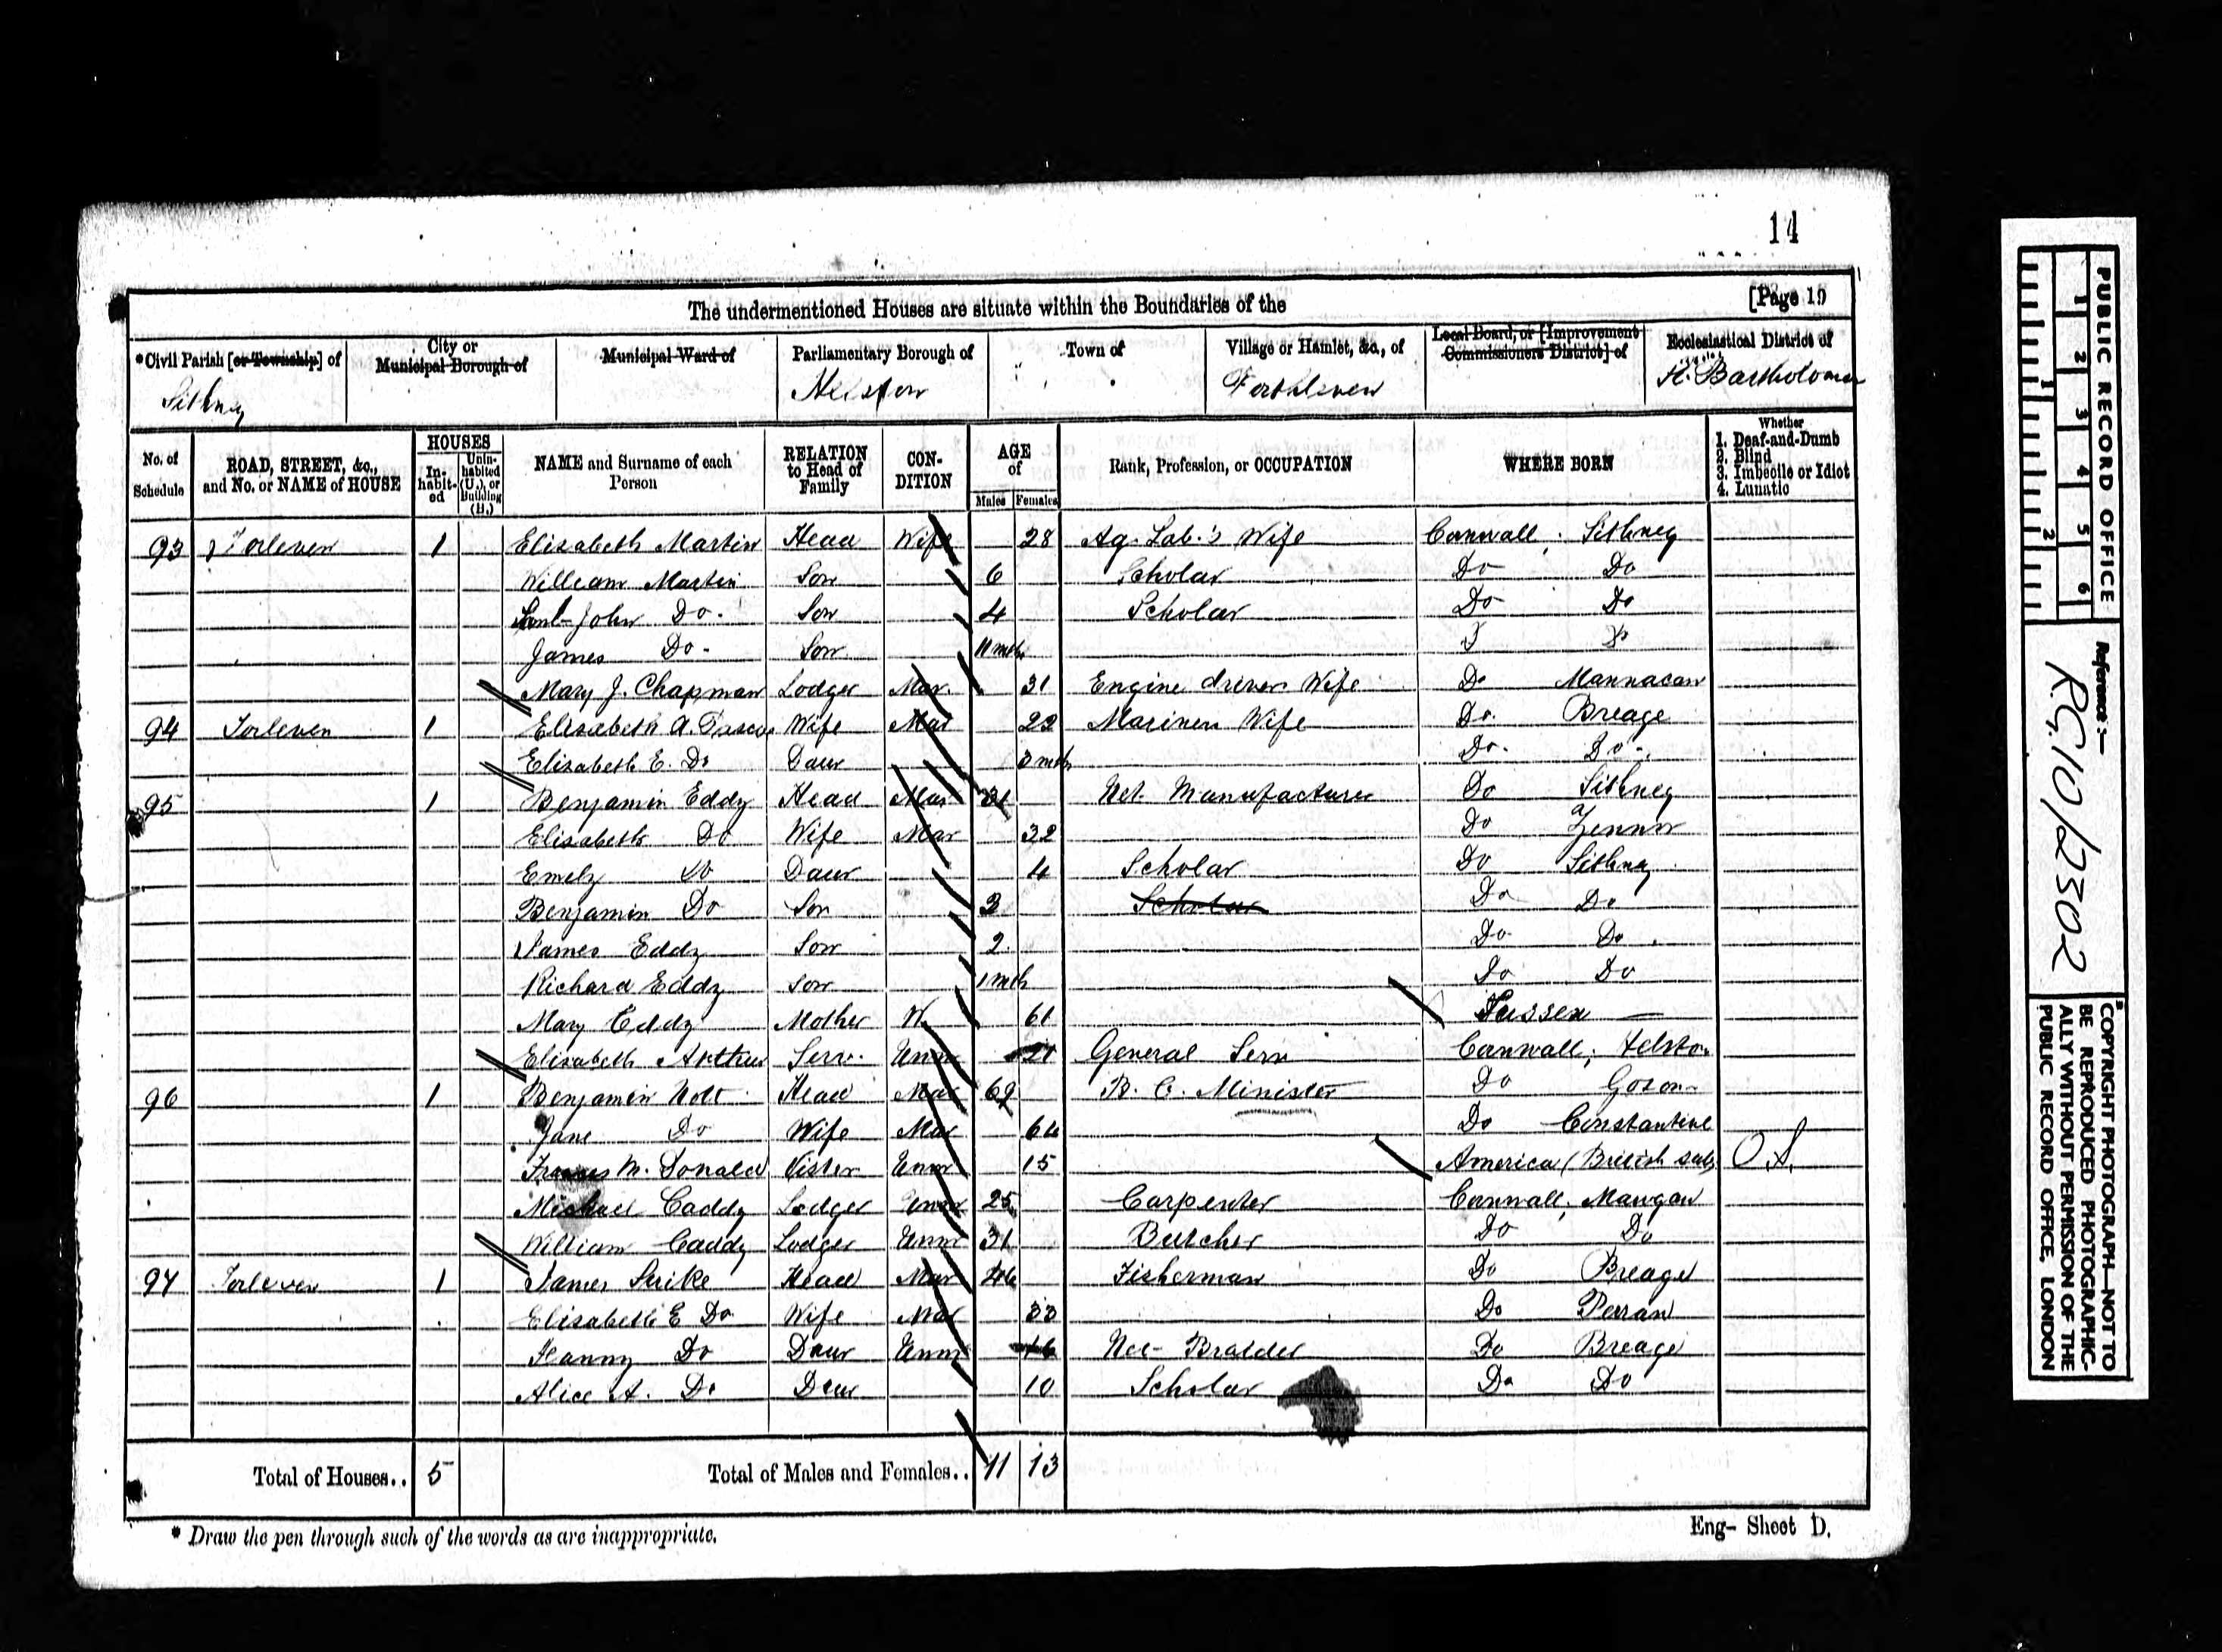 14
The undermentioned Houses are situate within the Boundaries of the [Page 19
*Civil Parish [or Township] of City or Municipal Borough of Municipal Ward of Parliamentary Borough of Town of Village or Hamlet, &c., of Local Board, or [Improvement Commissioners District] of Ecclesiastical District of
Sithney Helston Porthleven St. Bartholomew
No. of Schedule ROAD, STREET, &c., and No. or NAME of HOUSE HOUSES Inhabited Uninhabited (U.), or Building (B.) NAME and Surname of each Person RELATION to Head of Family CONDITION AGE of Males Females Rank, Profession, or OCCUPATION WHERE BORN Whether 1. Deaf-and-Dumb 2. Blind 3. Imbecile or Idiot 4. Lunatic
93 Torleven 1 Elizabeth Martin Head Wife 28 Ag. Lab.'s Wife Cornwall, Sithney
William Martin Son 6 Scholar Do Do
John Do. Son 4 Scholar Do Do
James Do. Son 11 mths
Mary J. Chapman Lodger Mar. 31 Engine driver Wife Do Mannacan
94 Torleven 1 Elizabeth A. Pascoe Wife Mar 22 Mariners Wife Do. Breage
Elizabeth E. Do Daur 3 mths Do. Do.
95 1 Benjamin Eddy Head Mar 31 Net Manufacturer Do Sithney
Elizabeth Do Wife Mar 32 Do Zennor
Emily Do Daur 4 Scholar Do Sithney
Benjamin Do Son 3 Scholar Do Do
James Eddy Son 2 Do Do
Richard Eddy Son 1 mth Do Do
Mary Eddy Mother W. 61 Sussex
Elizabeth Arthur Serv. Unm 21 General Serv Cornwall, Helston
96 1 Benjamin Head Mar 69 B. C. Minister Do
Jane Do Wife Mar 64 Do Constantine
Frances M. Donald Unm 15 America (British sub)
Michael Caddy Lodger Unm 25 Carpenter Cornwall, Mawgan
William Caddy Lodger Unm 31 Butcher Do Do
97 Torleven 1 James Strike Head Mar 46 Fisherman Do Breage
Elizabeth E Do Wife Mar 33 Do Perran
Fanny Do Daur Unm 16 Net Braider Do Breage
Alice A. Do Daur 10 Scholar Do Do
Total of Houses.. 5 Total of Males and Females.. 11 13
* Draw the pen through such of the words as are inappropriate.
Eng- Sheet D.
PUBLIC RECORD OFFICE
1 2 3 4 5 6
1 2
Reference:—
RG.10/2302
COPYRIGHT PHOTOGRAPH—NOT TO
BE REPRODUCED PHOTOGRAPHIC-
ALLY WITHOUT PERMISSION OF THE
PUBLIC RECORD OFFICE, LONDON